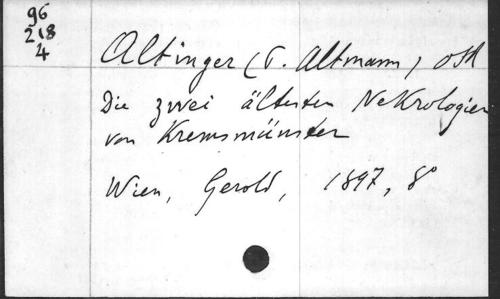 96
218
4
Altinger (P. Altmann) OSB
Die zwei ältesten Nekrologien
von Kremsmünster
Wien, Gerold, 1897, 8°